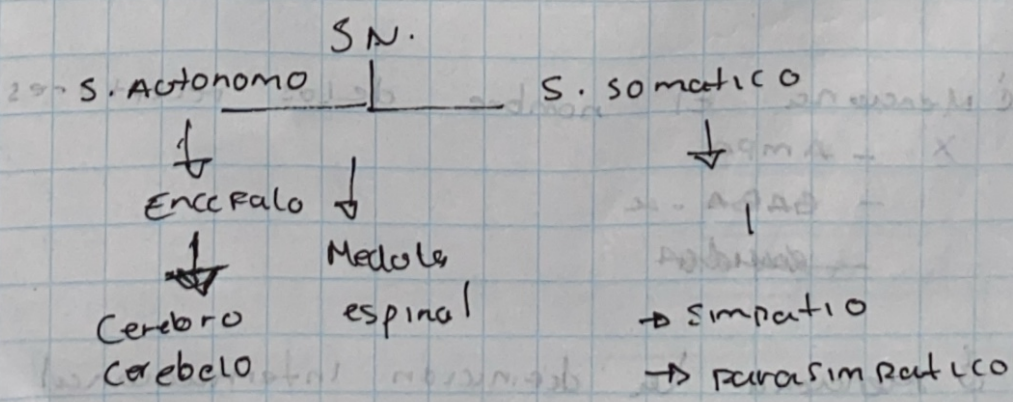 SN.
S. Autonomo
S. Somatico
Encefalo
Medula
espinal
Cerebro
Cerebelo
→ simpatio
→ parasimpatico